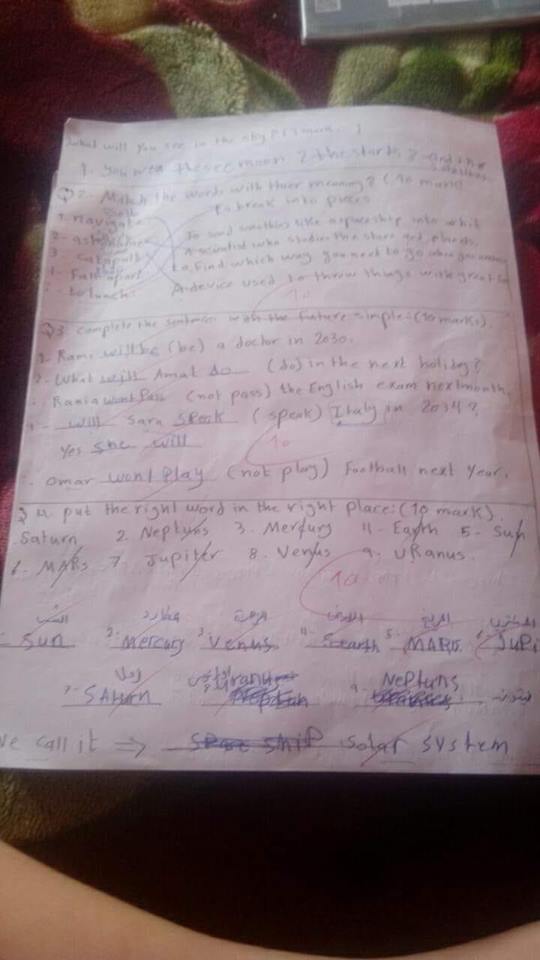 What will you see in the sky? (3 mark)
Q2- Match the words with thier meaning? (10 mark)
1- navigate
to break into pieces
To send something like a spaceship into orbit
3- catapult
A scientist who studies the stars and planets
4- Fall apart
to find which way you need to go when you
to lunch
A device used to throw things with great
10
Q3 complete the sentences with the future simple: (10 marks).
1- Rami will be (be) a doctor in 2030.
2- What will Amal do (do) in the next holiday?
Rania wont Pass (not pass) the English exam next month.
will Sara speak (speak) Italy in 2034?
Yes she will
10
Omar wont play (not play) Football next year.
Q4 put the right word in the right place: (10 mark).
Saturn 2. Neptuns 3- Mercury 4- Earth 5- Sun
6- MARs 7. Jupiter 8. Venus 9. URanus.
10
الشمس عطارد الزهرة الارض المريخ المشتري
Sun 2- Mercury 3- Venus 4- earth 5- MARs 6- JuPi
زحل
7- SAturn Uranu 9- NePtuns
we call it ⇒ solar system